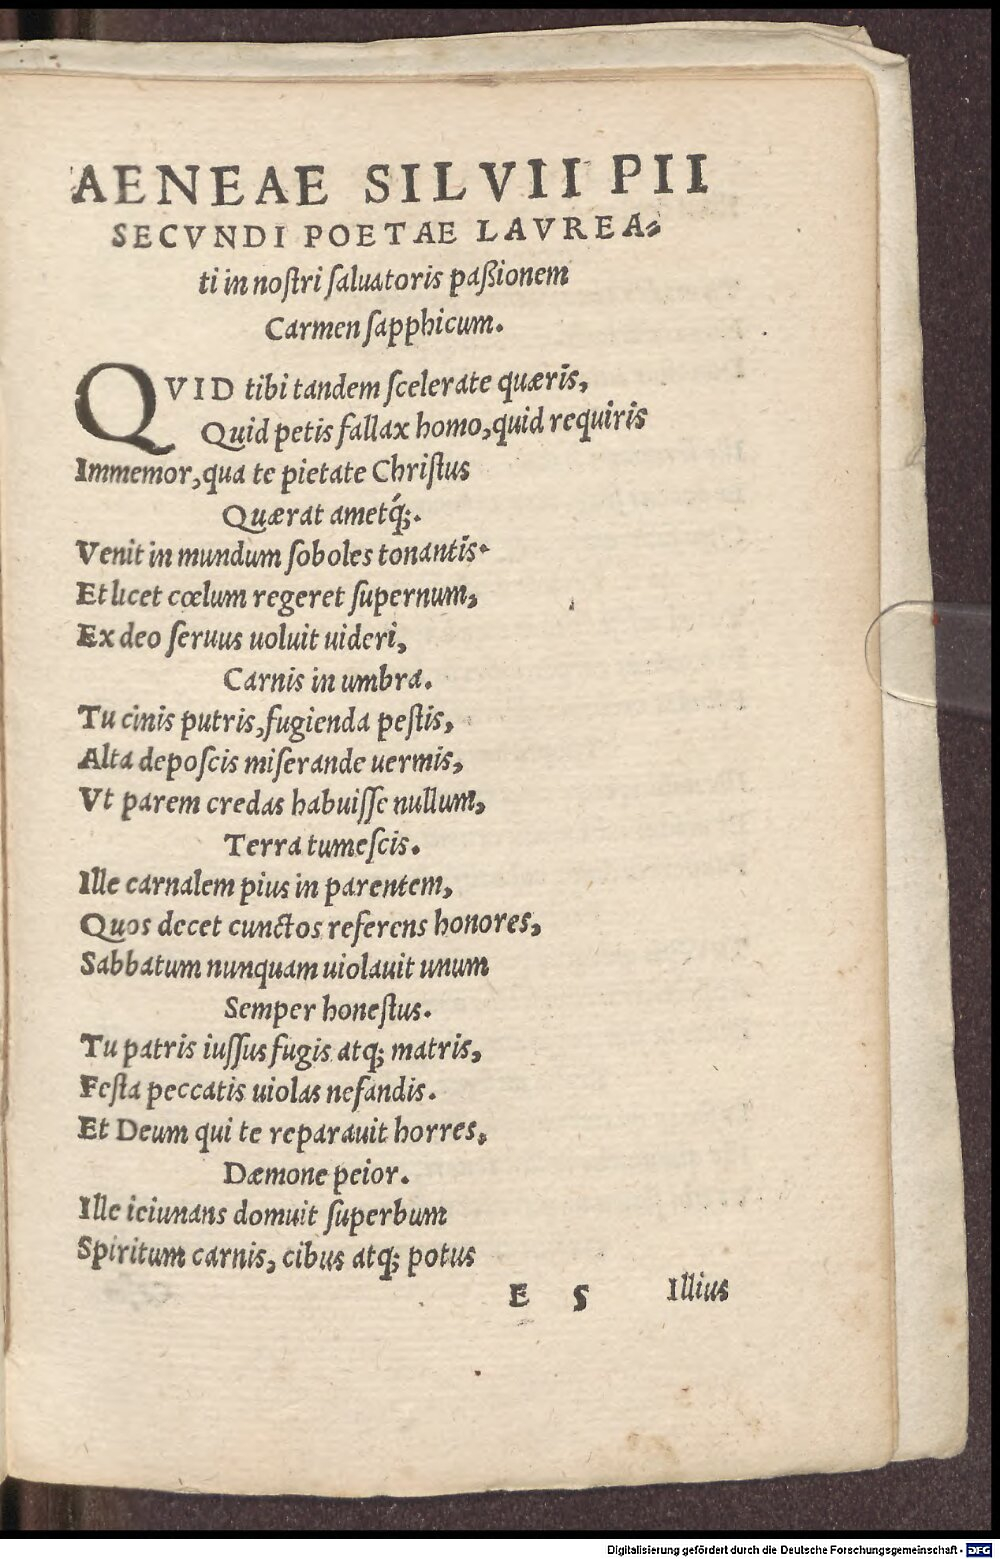 AENEAE SILVII PII
SECVNDI POETAE LAVREA⸗
ti in noſtri ſaluatoris paßionem
Carmen ſapphicum.
QVID tibi tandem ſcelerate quæris,
Quid petis fallax homo, quid requiris
Immemor, qua te pietate Chriſtus
Quærat ametq́;.
Venit in mundum ſoboles tonantis.
Et licet cœlum regeret ſupernum,
Ex deo ſeruus uoluit uideri,
Carnis in umbra.
Tu cinis putris, fugienda peſtis,
Alta depoſcis miſerande uermis,
Vt parem credas habuiſſe nullum,
Terra tumeſcis.
Ille carnalem pius in parentem,
Quos decet cunctos referens honores,
Sabbatum nunquam uiolauit unum
Semper honeſtus.
Tu patris iuſſus fugis atq; matris,
Feſta peccatis uiolas nefandis.
Et Deum qui te reparauit horres,
Dæmone peior.
Ille ieiunans domuit ſuperbum
Spiritum carnis, cibus atq; potus
E 5 Illius
Digitalisierung gefördert durch die Deutsche Forschungsgemeinschaft - DFG